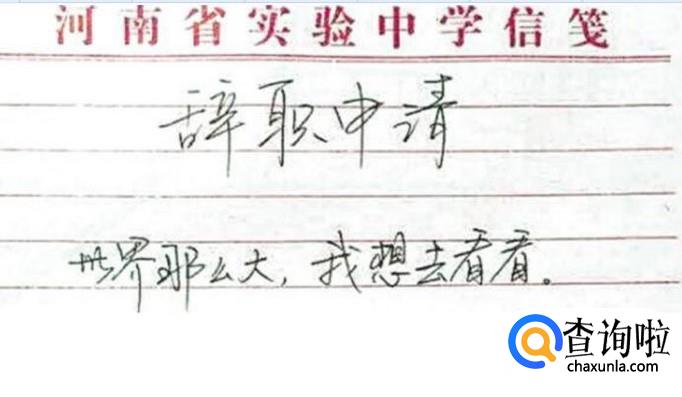 河南省实验中学信笺
辞职申请
世界那么大，我想去看看。
查询啦
chaxunla.com